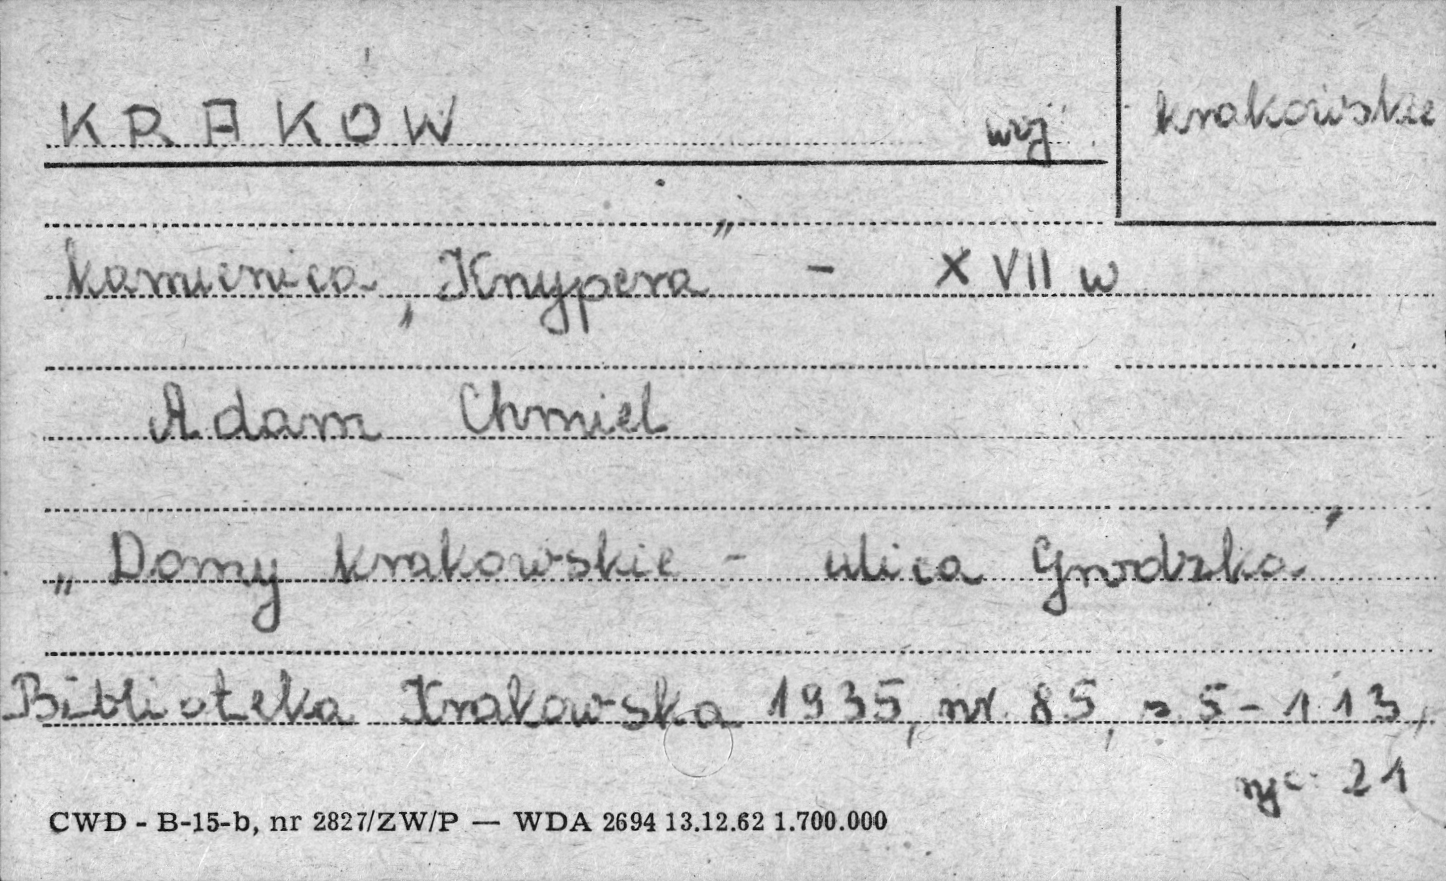 KRAKOW woj krakowskie
kamienica „Knypera” - XVII w
Adam Chmiel
„Domy krakowskie - ulica Grodzka”
Biblioteka Krakowska 1935, nr. 85, s 5-113,
ryc. 21
CWD - B-15-b, nr 2827/ZW/P — WDA 2694 13.12.62 1.700.000